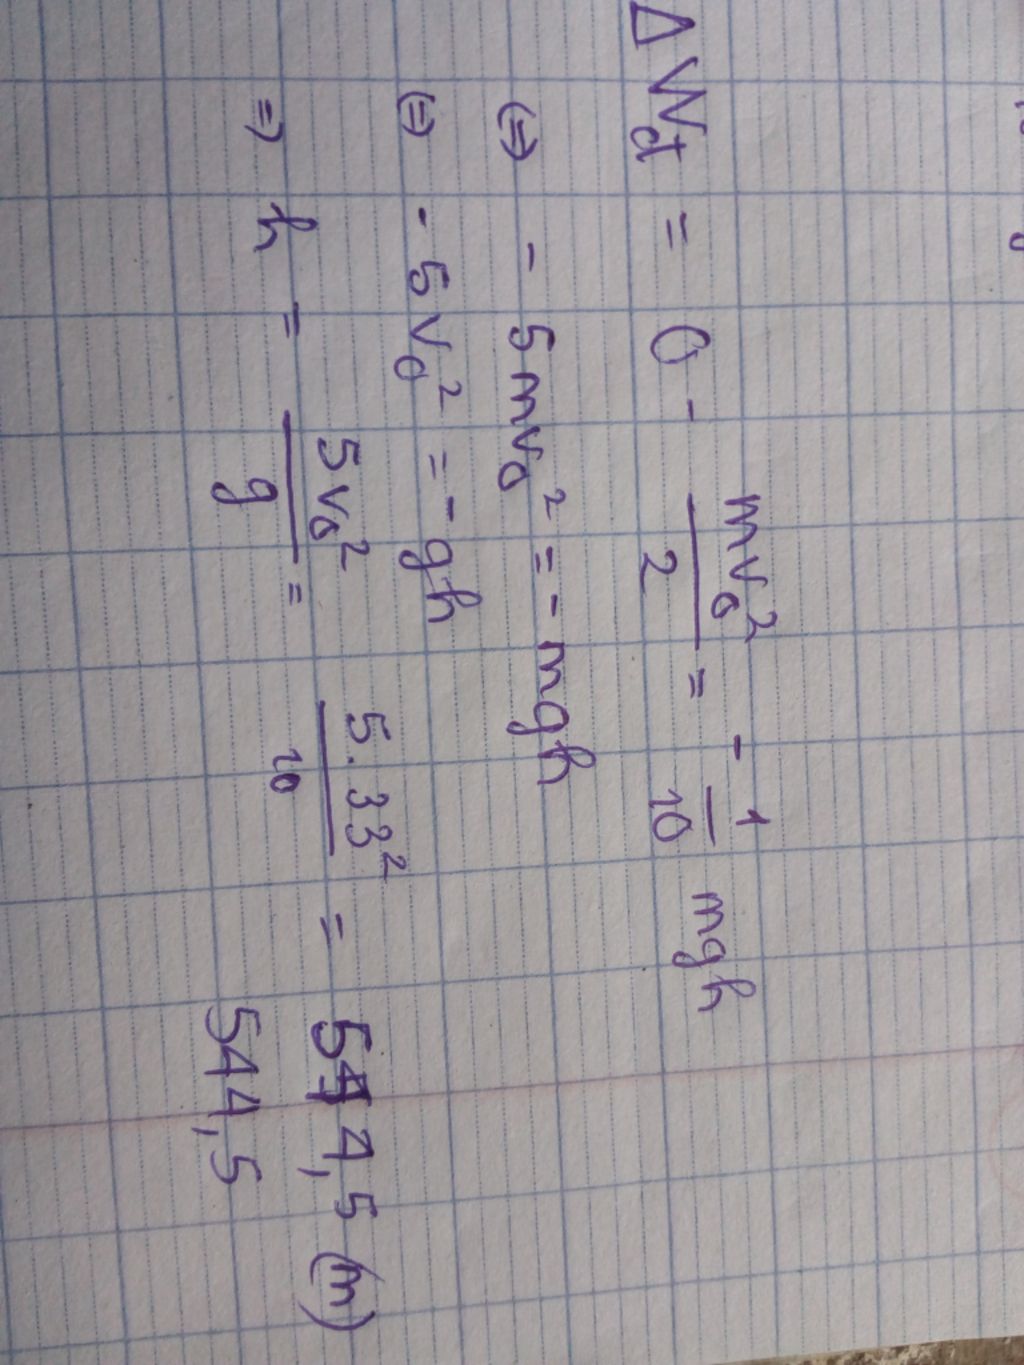 Δ Wđ = 0 - mv₀²/2 = - 1/10 mgh
(=) - 5mv₀² = - mgh
(=) - 5v₀² = - gh
=) h = 5v₀²/g = 5.33²/10 = 544,5 (m)
544,5